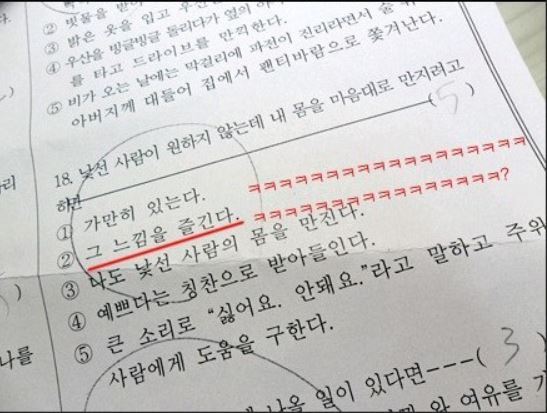 ② 빗물을 받아
③ 밝은 옷을 입고 우산
④ 우산을 빙글빙글 돌리다가 옆의
를 타고 드라이브를 만끽한다.
⑤ 비가 오는 날에는 막걸리에 파전이 진리라면서 술
아버지께 대들어 집에서 팬티바람으로 쫓겨난다.
( 5 )
18. 낯선 사람이 원하지 않는데 내 몸을 마음대로 만지려고
하면
① 가만히 있는다.
ㅋㅋㅋㅋㅋㅋㅋㅋㅋㅋㅋㅋㅋㅋㅋㅋㅋ
② 그 느낌을 즐긴다.
ㅋㅋㅋㅋㅋㅋㅋㅋㅋㅋㅋㅋㅋㅋㅋ?
③ 나도 낯선 사람의 몸을 만진다.
④ 예쁘다는 칭찬으로 받아들인다.
⑤ 큰 소리로 “싫어요. 안돼요.”라고 말하고 주위
사람에게 도움을 구한다.
나올 일이 있다면---( 3 )
와 여유를 가
리
나를